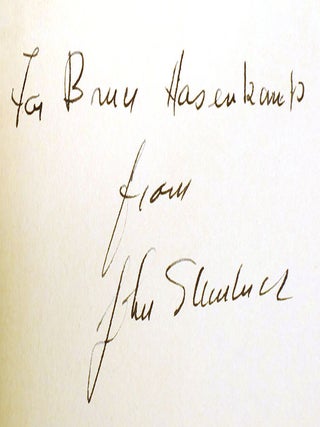 For Bruce Hasenkamp
from
John